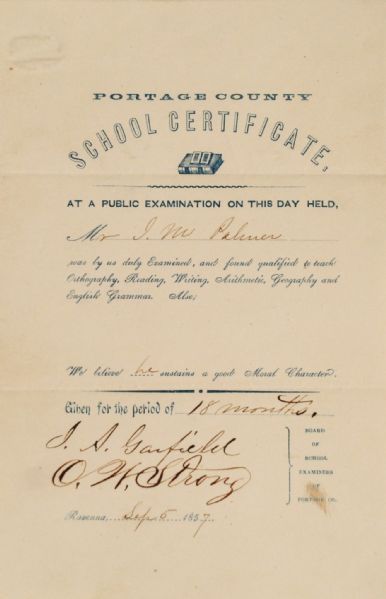 PORTAGE COUNTY
SCHOOL CERTIFICATE,
AT A PUBLIC EXAMINATION ON THIS DAY HELD,
Mr I. M Palmer
was by us duly Examined, and found qualified to teach
Orthography, Reading, Writing, Arithmetic, Geography and
English Grammar. Also;
We believe he sustains a good Moral Character.
Given for the period of 18 months.
J. A. Garfield
O. W. Strong
BOARD
OF
SCHOOL
EXAMINERS
OF
PORTAGE CO.
Ravenna, Sep. 5 1857.